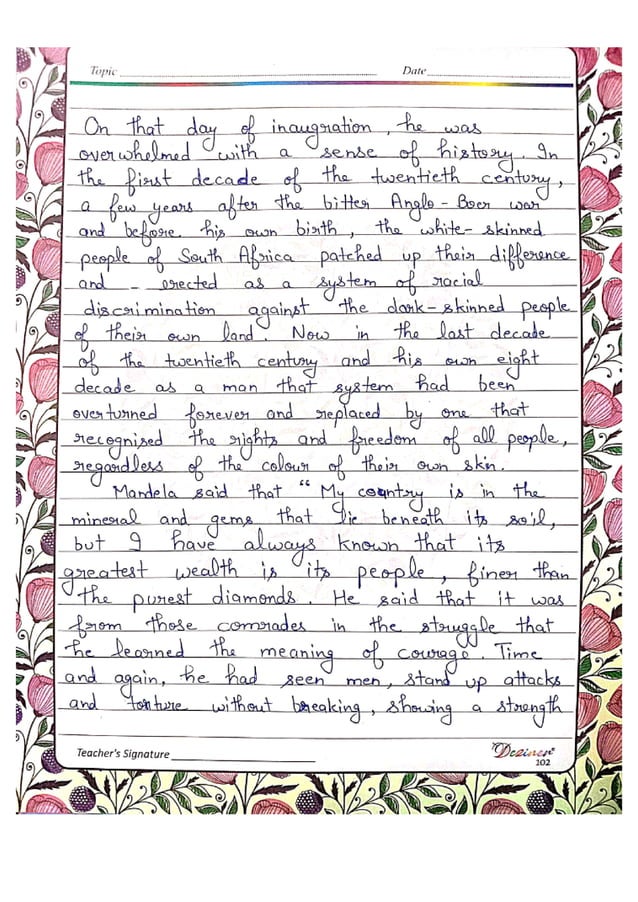 Topic Date
On that day of inaugration, he was
overwhelmed with a sense of history. In
the first decade of the twentieth century,
a few years after the bitter Anglo-Boer war
and before his own birth, the white-skinned
people of South Africa patched up their difference
and - erected as a system of racial
discrimination against the dark-skinned people
of their own land. Now in the last decade
of the twentieth century and his own eight
decade as a man that system had been
overturned forever and replaced by one that
recognised the rights and freedom of all people,
regardless of the colour of their own skin.
Mandela said that "My country is in the
mineral and gems that lie beneath its soil,
but I have always known that its
greatest wealth is its people, finer than
the purest diamonds. He said that it was
from those comrades in the struggle that
he learned the meaning of courage. Time
and again, he had seen men, stand up attacks
and torture without breaking, showing a strength
Teacher's Signature Deziner
102